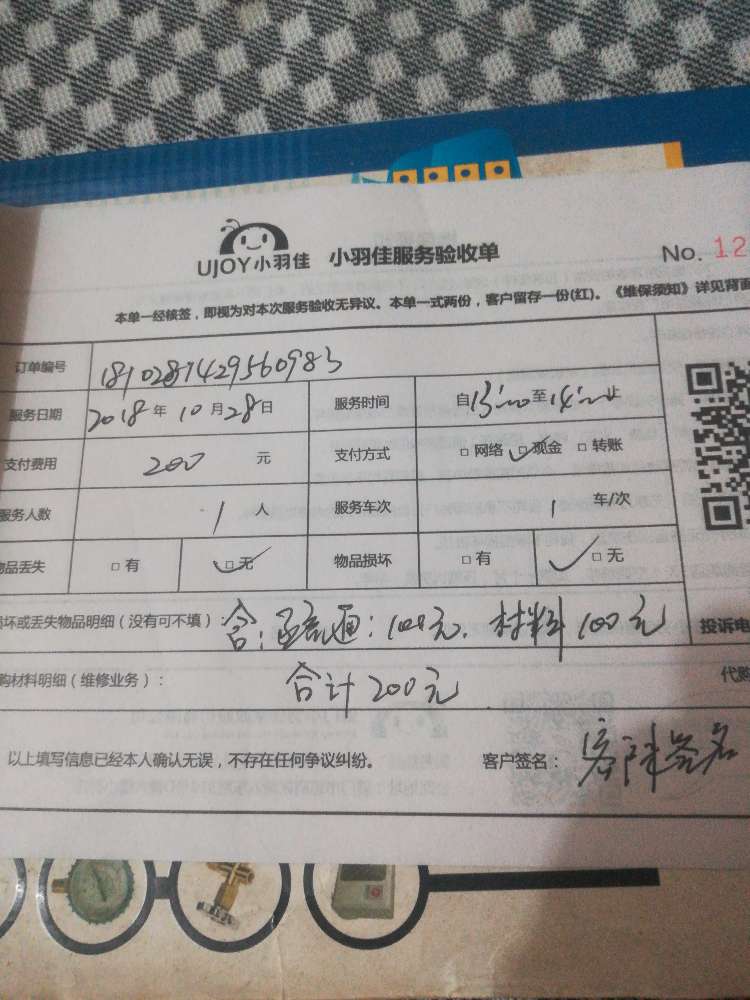 UJOY小羽佳 小羽佳服务验收单 No. 12
本单一经核签，即视为对本次服务验收无异议。本单一式两份，客户留存一份(红)。《维保须知》详见背面
订单编号 1810281429560983
服务日期 2018年10月28日 服务时间 自13:00至14:00止
支付费用 200 元 支付方式 □网络 ☑现金 □转账
服务人数 1 人 服务车次 1 车/次
物品丢失 □有 ☑无 物品损坏 □有 ☑无
坏或丢失物品明细（没有可不填） 含: 疏通: 100元. 材料100元 投诉电
购材料明细（维修业务）： 合计200元 代购
以上填写信息已经本人确认无误，不存在任何争议纠纷。 客户签名：